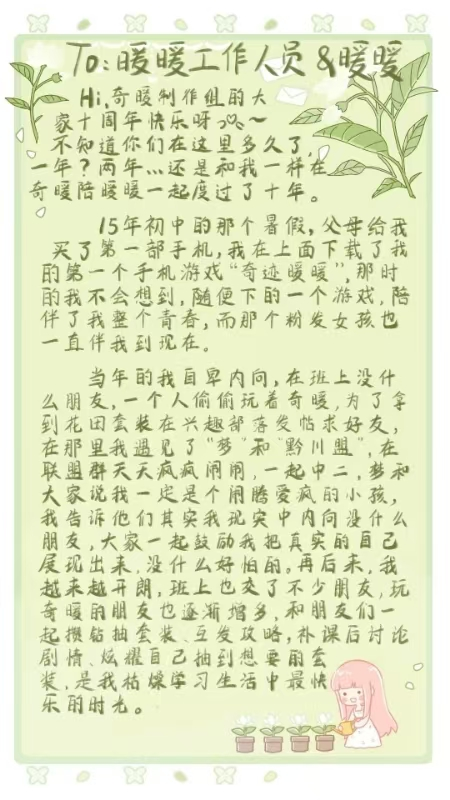 To:暖暖工作人员&暖暖
Hi,奇暖制作组的大
家十周年快乐呀~
不知道你们在这里多久了,
一年?两年...还是和我一样在
奇暖陪暖暖一起度过了十年。
15年初中的那个暑假,父母给我
买了第一部手机,我在上面下载了我
的第一个手机游戏“奇迹暖暖”,那时
的我不会想到,随便下的一个游戏,陪
伴了我整个青春,而那个粉发女孩也
一直伴我到现在。
当年的我自卑内向,在班上没什
么朋友,一个人偷偷玩着奇暖,为了拿
到花园套装在兴趣部落发帖求好友,
在那里我遇见了“梦”和“黔川盟”,在
联盟群天天疯疯闹闹,一起中二,梦和
大家说我一定是个闹腾爱疯的小孩,
我告诉他们其实我现实中内向没什么
朋友,大家一起鼓励我把真实的自己
展现出来,没什么好怕的。再后来,我
越来越开朗,班上也交了不少朋友,玩
奇暖的朋友也逐渐增多,和朋友们一
起攒钻抽套装、互发攻略,补课后讨论
剧情、炫耀自己抽到想要的套
装,是我枯燥学习生活中最快
乐的时光。